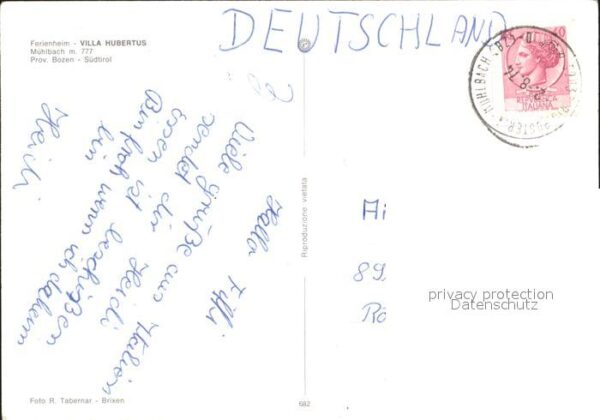 Ferienheim - VILLA HUBERTUS
Mühlbach m. 777
Prov. Bozen - Südtirol
DEUTSCHLAND
Hallo Fiffi
Viele grüße aus Italien
sendet dir Heidi
Essen ist beschißen
Bin froh wenn ich daheim
bin
Heidi
Riproduzione vietata
REPUBBLICA
ITALIANA
MUHLBACH (BZ)
8.74
Ai
89
Rö
privacy protection
Datenschutz
Foto R. Tabernar - Brixen
682